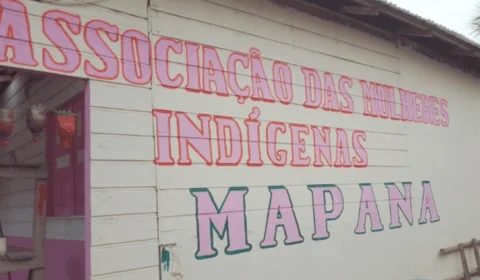 ASSOCIAÇÃO DAS MULHERES
INDÍGENAS
MAPANA